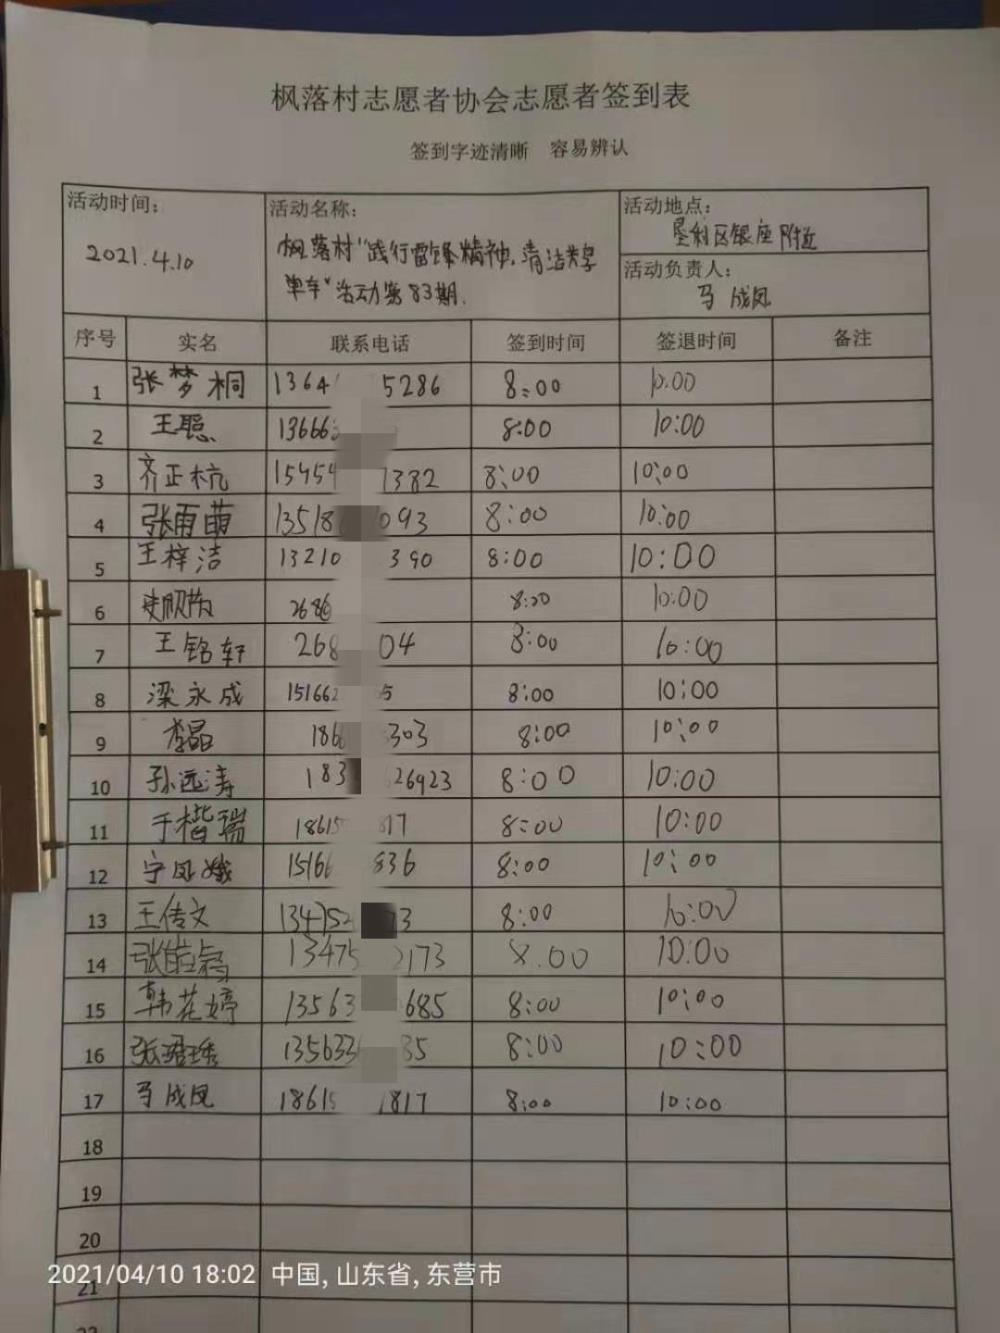 枫落村志愿者协会志愿者签到表
签到字迹清晰 容易辨认
活动时间: 2021.4.10
活动名称: 枫落村"践行雷锋精神,清洁共享
单车"活动第83期.
活动地点: 垦利区银座附近
活动负责人: 马成凤
序号 实名 联系电话 签到时间 签退时间 备注
1 张梦桐 1364 5286 8:00 10:00
2 王聪 13666 8:00 10:00
3 齐正杭 15454 1382 8:00 10:00
4 张雨萌 13518 093 8:00 10:00
5 王梓洁 13210 390 8:00 10:00
6 2686 8:00 10:00
7 王铭轩 268 04 8:00 10:00
8 梁永成 15166 5 8:00 10:00
9 李晶 186 303 8:00 10:00
10 孙远涛 183 26923 8:00 10:00
11 于楷瑞 18615 817 8:00 10:00
12 宁凤娥 15166 836 8:00 10:00
13 王传文 134752 3 8:00 10:00
14 13475 2173 8:00 10:00
15 韩花婷 13563 685 8:00 10:00
16 张珺琇 135633 35 8:00 10:00
17 马成凤 18615 1817 8:00 10:00
18
19
20
21
2021/04/10 18:02 中国,山东省,东营市